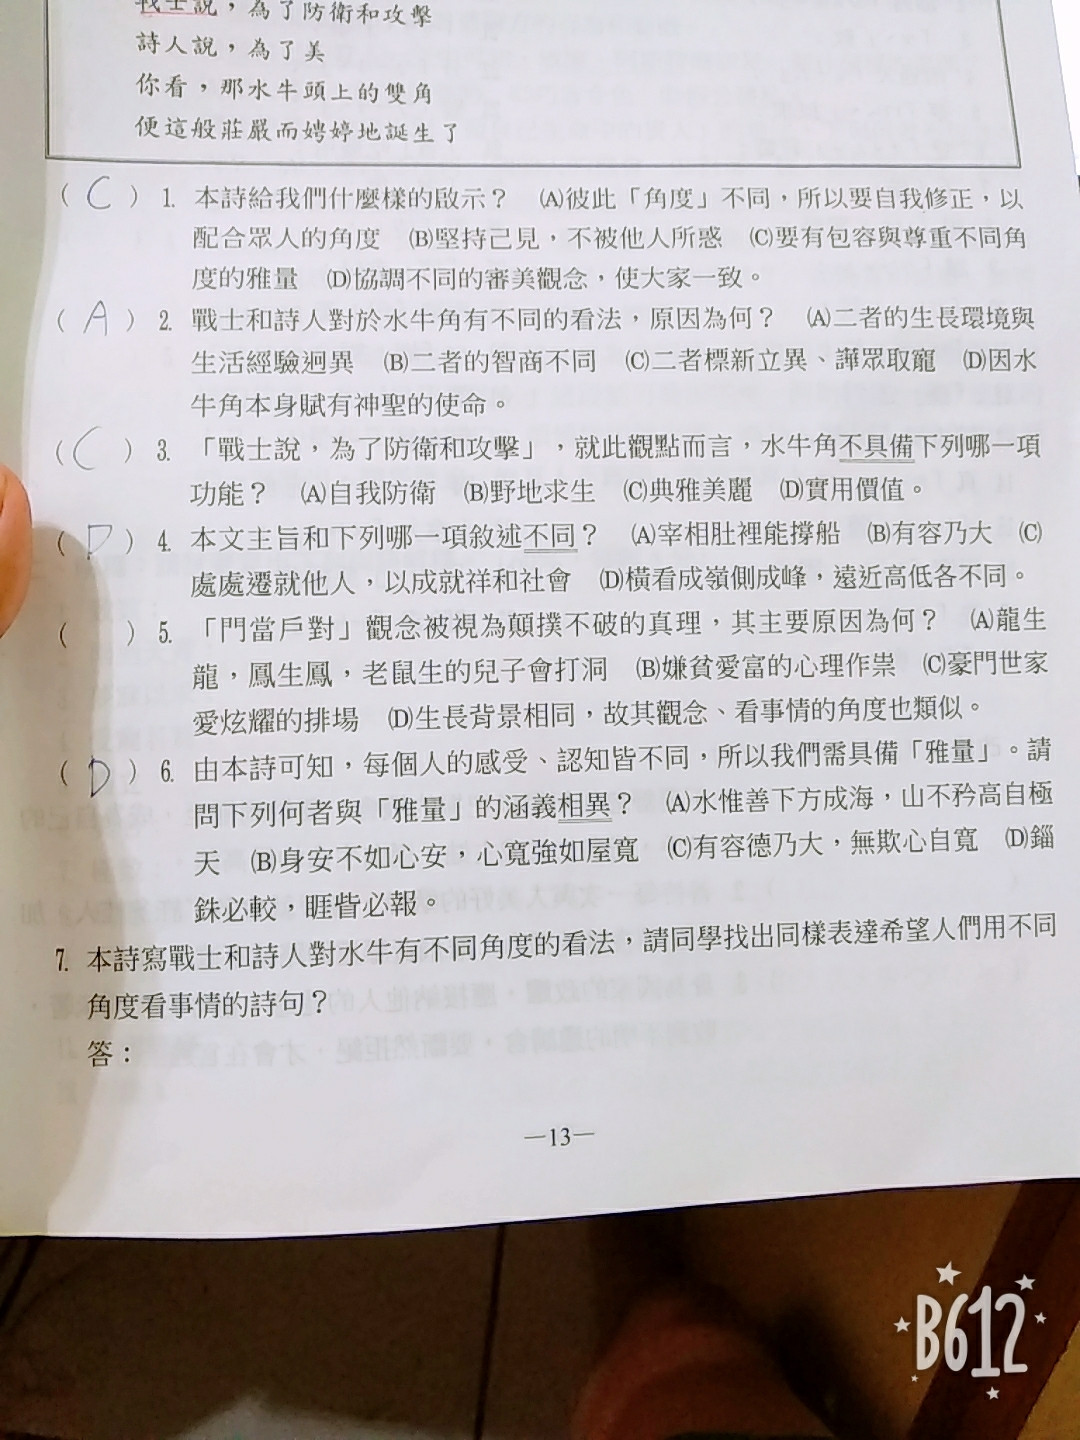 戰士說，為了防衛和攻擊
詩人說，為了美
你看，那水牛頭上的雙角
便這般莊嚴而娉婷地誕生了
（ C ）1. 本詩給我們什麼樣的啟示？ (A)彼此「角度」不同，所以要自我修正，以
配合眾人的角度 (B)堅持己見，不被他人所惑 (C)要有包容與尊重不同角
度的雅量 (D)協調不同的審美觀念，使大家一致。
（ A ）2. 戰士和詩人對於水牛角有不同的看法，原因為何？ (A)二者的生長環境與
生活經驗迥異 (B)二者的智商不同 (C)二者標新立異、譁眾取寵 (D)因水
牛角本身賦有神聖的使命。
（ C ）3. 「戰士說，為了防衛和攻擊」，就此觀點而言，水牛角不具備下列哪一項
功能？ (A)自我防衛 (B)野地求生 (C)典雅美麗 (D)實用價值。
（ D ）4. 本文主旨和下列哪一項敘述不同？ (A)宰相肚裡能撐船 (B)有容乃大 (C)
處處遷就他人，以成就祥和社會 (D)橫看成嶺側成峰，遠近高低各不同。
（ ）5. 「門當戶對」觀念被視為顛撲不破的真理，其主要原因為何？ (A)龍生
龍，鳳生鳳，老鼠生的兒子會打洞 (B)嫌貧愛富的心理作祟 (C)豪門世家
愛炫耀的排場 (D)生長背景相同，故其觀念、看事情的角度也類似。
（ D ）6. 由本詩可知，每個人的感受、認知皆不同，所以我們需具備「雅量」。請
問下列何者與「雅量」的涵義相異？ (A)水惟善下方成海，山不矜高自極
天 (B)身安不如心安，心寬強如屋寬 (C)有容德乃大，無欺心自寬 (D)錙
銖必較，睚眥必報。
7. 本詩寫戰士和詩人對水牛有不同角度的看法，請同學找出同樣表達希望人們用不同
角度看事情的詩句？
答：
—13—
B612